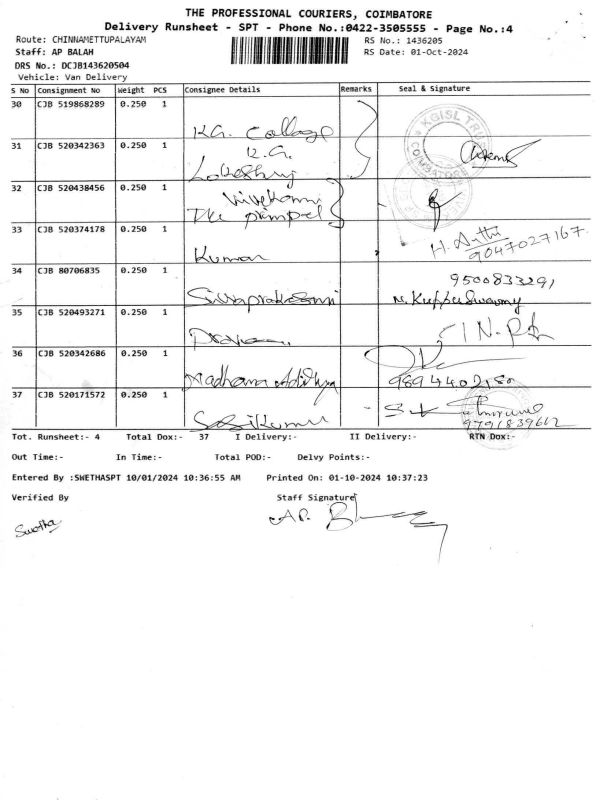 THE PROFESSIONAL COURIERS, COIMBATORE
Delivery Runsheet - SPT - Phone No.:0422-3505555 - Page No.:4
Route: CHINNAMETTUPALAYAM RS No.: 1436205
Staff: AP BALAH RS Date: 01-Oct-2024
DRS No.: DCJB143620504
Vehicle: Van Delivery
S No Consignment No Weight PCS Consignee Details Remarks Seal & Signature
30 CJB 519868289 0.250 1
KG. College
31 CJB 520342363 0.250 1
K.G.
KGISL TRUST
COIMBATORE
32 CJB 520438456 0.250 1
33 CJB 520374178 0.250 1
Kumar
9047027167
34 CJB 80706835 0.250 1
9500833291
N. Kuppuswamy
35 CJB 520493271 0.250 1
36 CJB 520342686 0.250 1
Madhana Adithya
9894402180
37 CJB 520171572 0.250 1
Sasikumar
9791839662
Tot. Runsheet:- 4 Total Dox:- 37 I Delivery:- II Delivery:- RTN Dox:-
Out Time:- In Time:- Total POD:- Delvy Points:-
Entered By :SWETHASPT 10/01/2024 10:36:55 AM Printed On: 01-10-2024 10:37:23
Verified By Staff Signature
Swetha
AP.